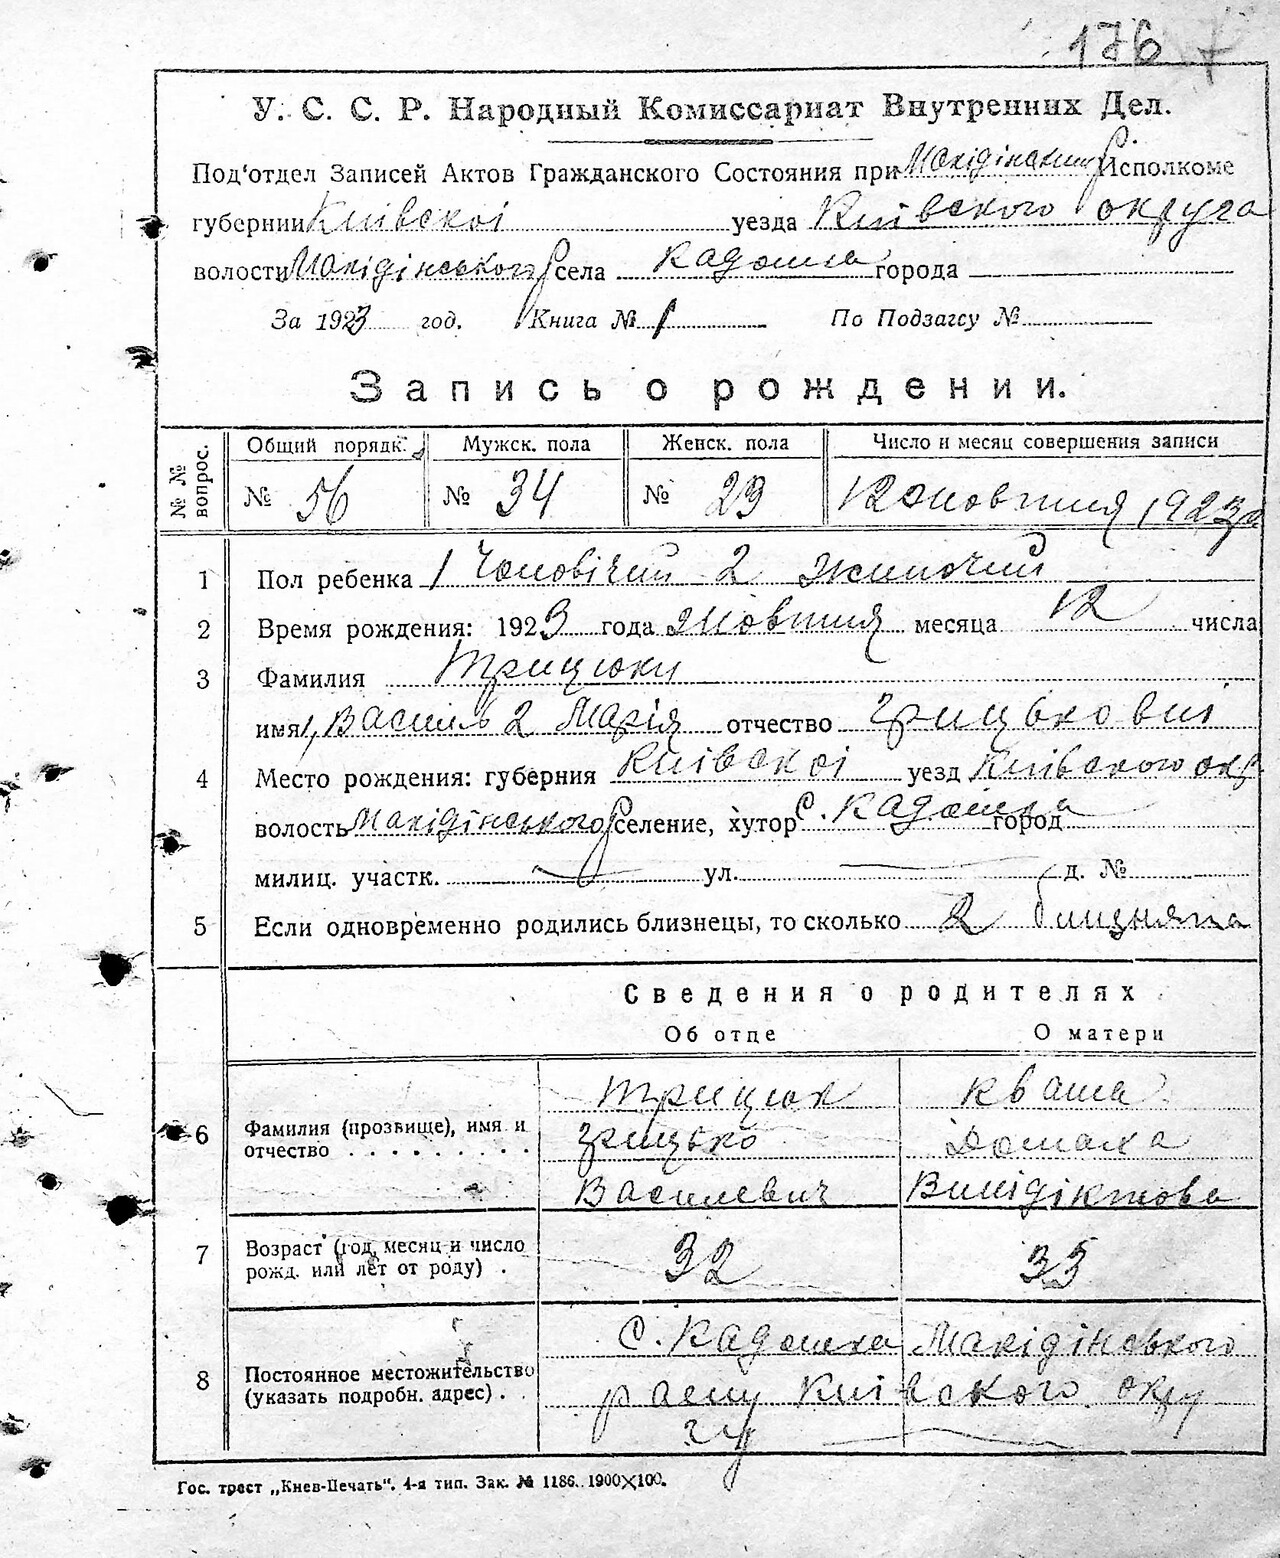 176 7
У. С. С. Р. Народный Комиссариат Внутренних Дел.
Под'отдел Записей Актов Гражданского Состояния при Исполкоме
губернии Київскоі уезда Київского округа
волости Макідінського р села города
За 1923 год. Книга № 1 По Подзагсу №
Запись о рождении.
№ № вопрос. Общий порядк. Мужск. пола Женск. пола Число и месяц совершения записи
№ 56 № 34 № 23 12 жовтня 1923 р
1 Пол ребенка 1 Чоловічий 2 жиночий
2 Время рождения: 1923 года жовтня месяца 12 числа
3 Фамилия Трицюки
имя 1, Василь 2 Марія отчество Грицькові
4 Место рождения: губерния Київскоі уезд Київского окр.
волость Макідінського р селение, хутор с. Кадомка город
милиц. участк. ул. д. №
5 Если одновременно родились близнецы, то сколько 2 близнята
Сведения о родителях
Об отце О матери
6 Фамилия (прозвище), имя и отчество . . . . . . . . .
Трицюк Кваша
Грицько Домаха
Василевич Винідіктова
7 Возраст (год, месяц и число рожд. или лет от роду) . 32 35
8 Постоянное местожительство (указать подробн. адрес) . .
С. Кадомка Макідінського
раену Київского окру
гу
Гос. трест „Киев-Печать“. 4-я тип. Зак. № 1186. 1900×100.